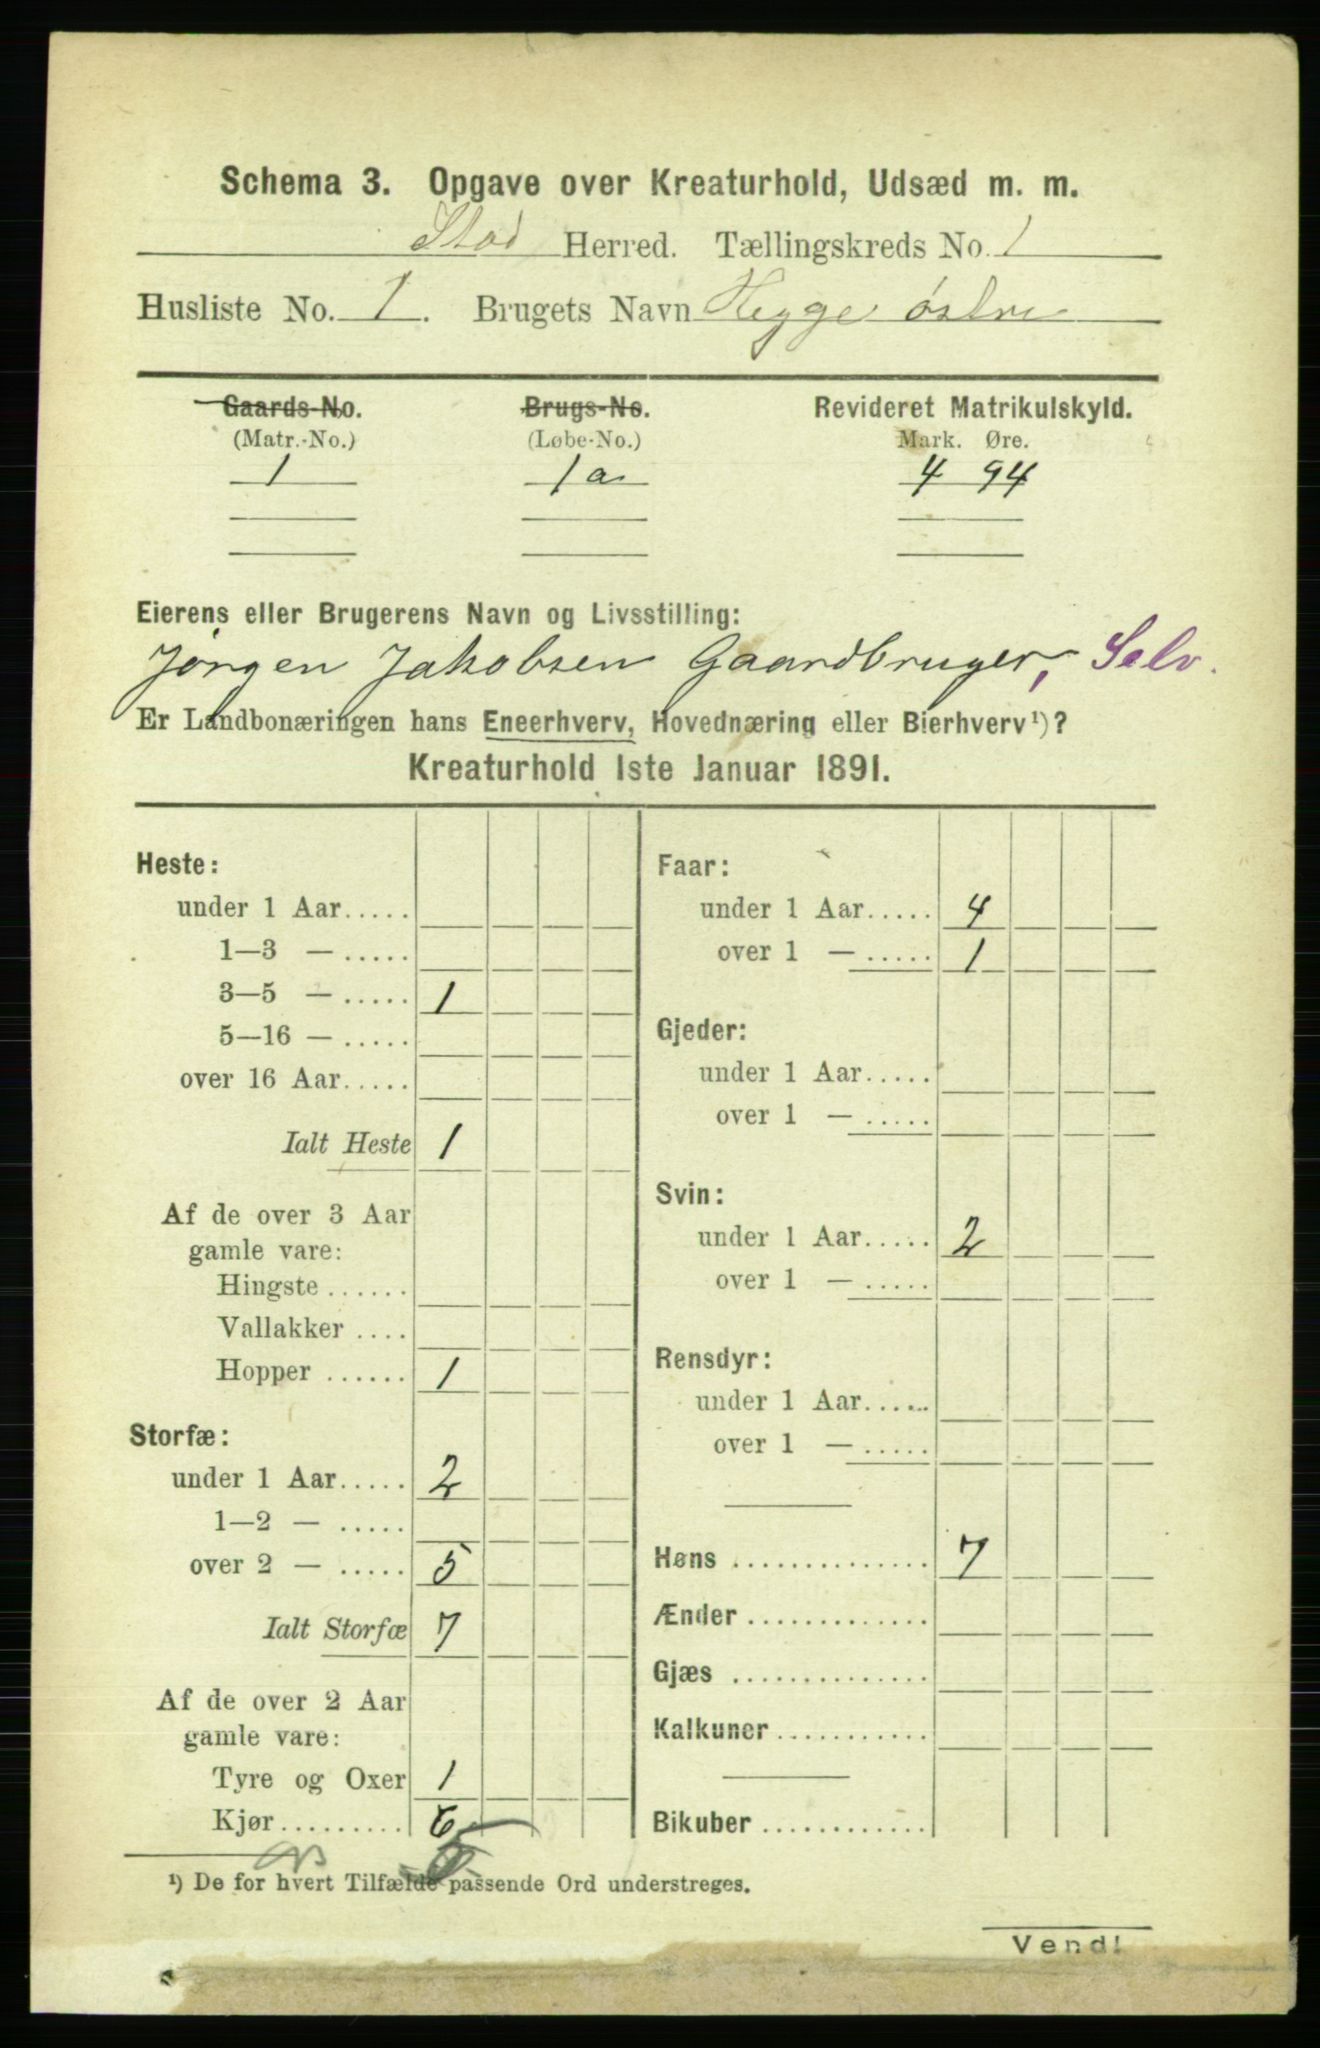 Schema 3. Opgave over Kreaturhold, Udsæd m. m.
Stod Herred. Tællingskreds No. 1
Husliste No. 1. Brugets Navn Hegge østre
Gaards-No. Brugs-No. Revideret Matrikulskyld.
(Matr.-No.) (Løbe-No.) Mark. Øre.
1 1a 4 94
Eierens eller Brugerens Navn og Livsstilling:
Jørgen Jakobsen Gaardbruger, Selv.
Er Landbonæringen hans Eneerhverv, Hovednæring eller Bierhverv¹)?
Kreaturhold 1ste Januar 1891.
Heste:
under 1 Aar.....
1—3 — .....
3—5 — ..... 1
5—16 — .....
over 16 Aar.....
Ialt Heste 1
Af de over 3 Aar
gamle vare:
Hingste ......
Vallakker ....
Hopper ...... 1
Storfæ:
under 1 Aar..... 2
1—2 — .....
over 2 — ..... 5
Ialt Storfæ 7
Af de over 2 Aar
gamle vare:
Tyre og Oxer 1
Kjør......... 6
Faar:
under 1 Aar..... 4
over 1 — ..... 1
Gjeder:
under 1 Aar.....
over 1 — .....
Svin:
under 1 Aar..... 2
over 1 — .....
Rensdyr:
under 1 Aar.....
over 1 — .....
Høns .............. 7
Ænder .............
Gjæs ..............
Kalkuner ...........
Bikuber ............
¹) De for hvert Tilfælde passende Ord understreges.
Vend!